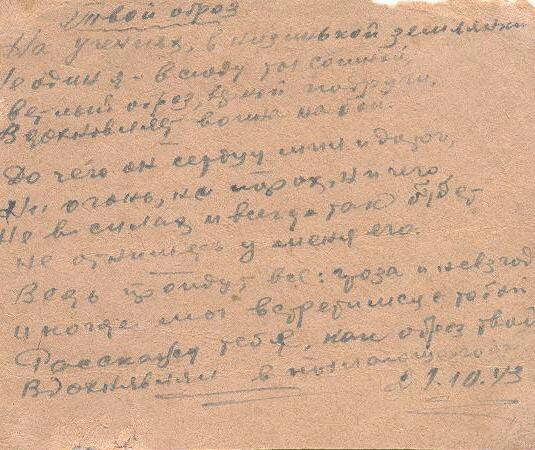 Твой образ
На учениях, в низинькой землянки
Не один я – всюду ты со мной,
ветлый образ, подруги,
Вдохновляет воина на бой.
До чего он сердцу мил и дорог,
Ни огонь, ни порох, ни чего
Не в силах и всегда так будет
не отнимать у меня его.
Ведь пройдут все: гроза и невзгод
и когда мы встретимся с тобой
Расскажу тебе, как образ твой
Вдохнявлял в
21.10.43